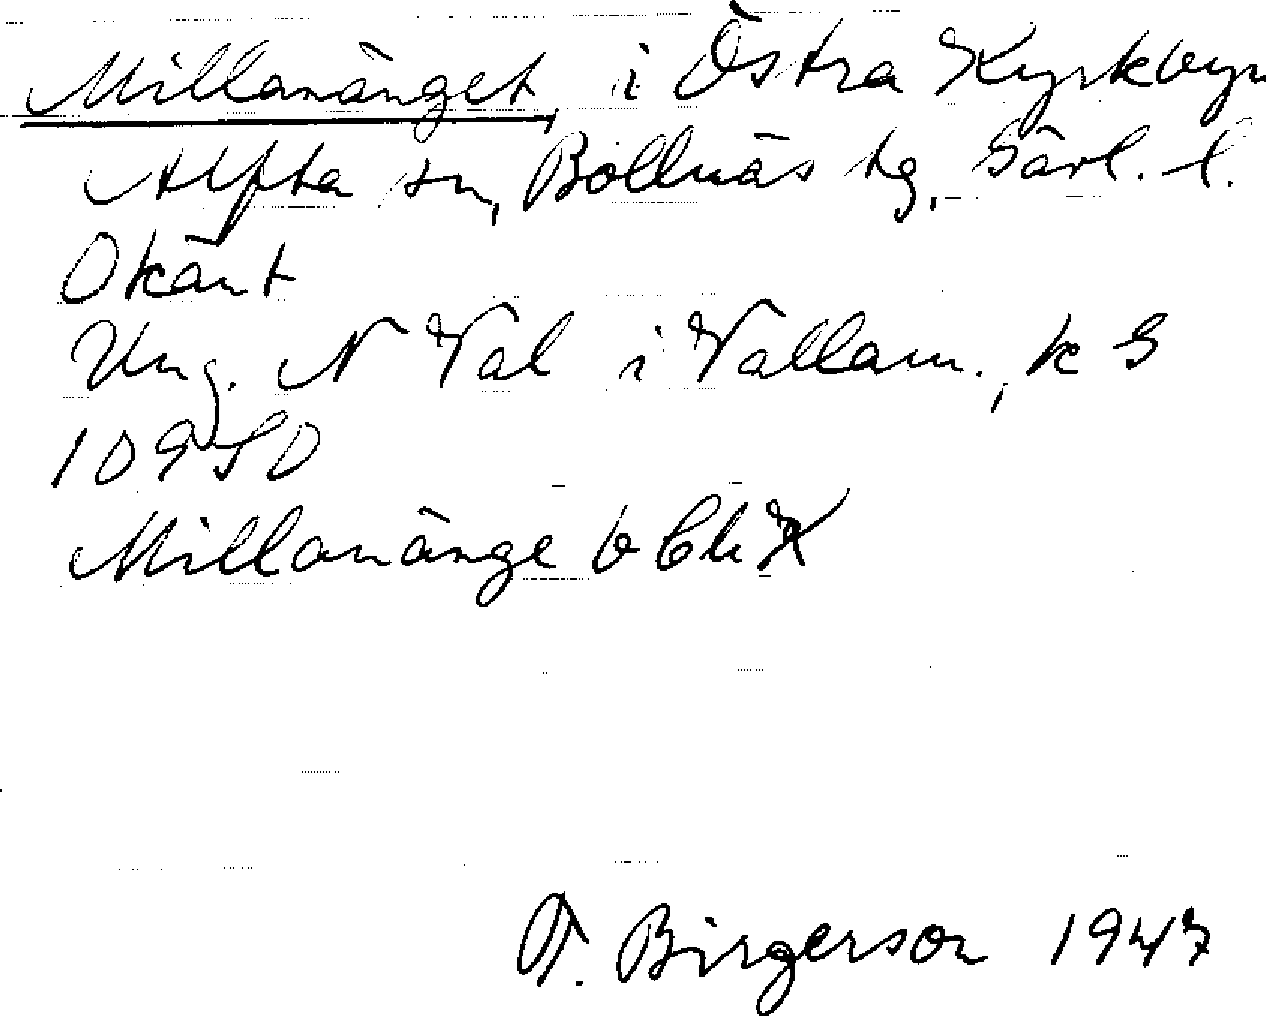 Millanänget, i Östra Kyrkbyn
Alfta sn, Bollnäs tg, Gävl. l.
Okänt
Ung. N Val i Vallam., k G
10950
Millanänge b
T. Birgerson 1947